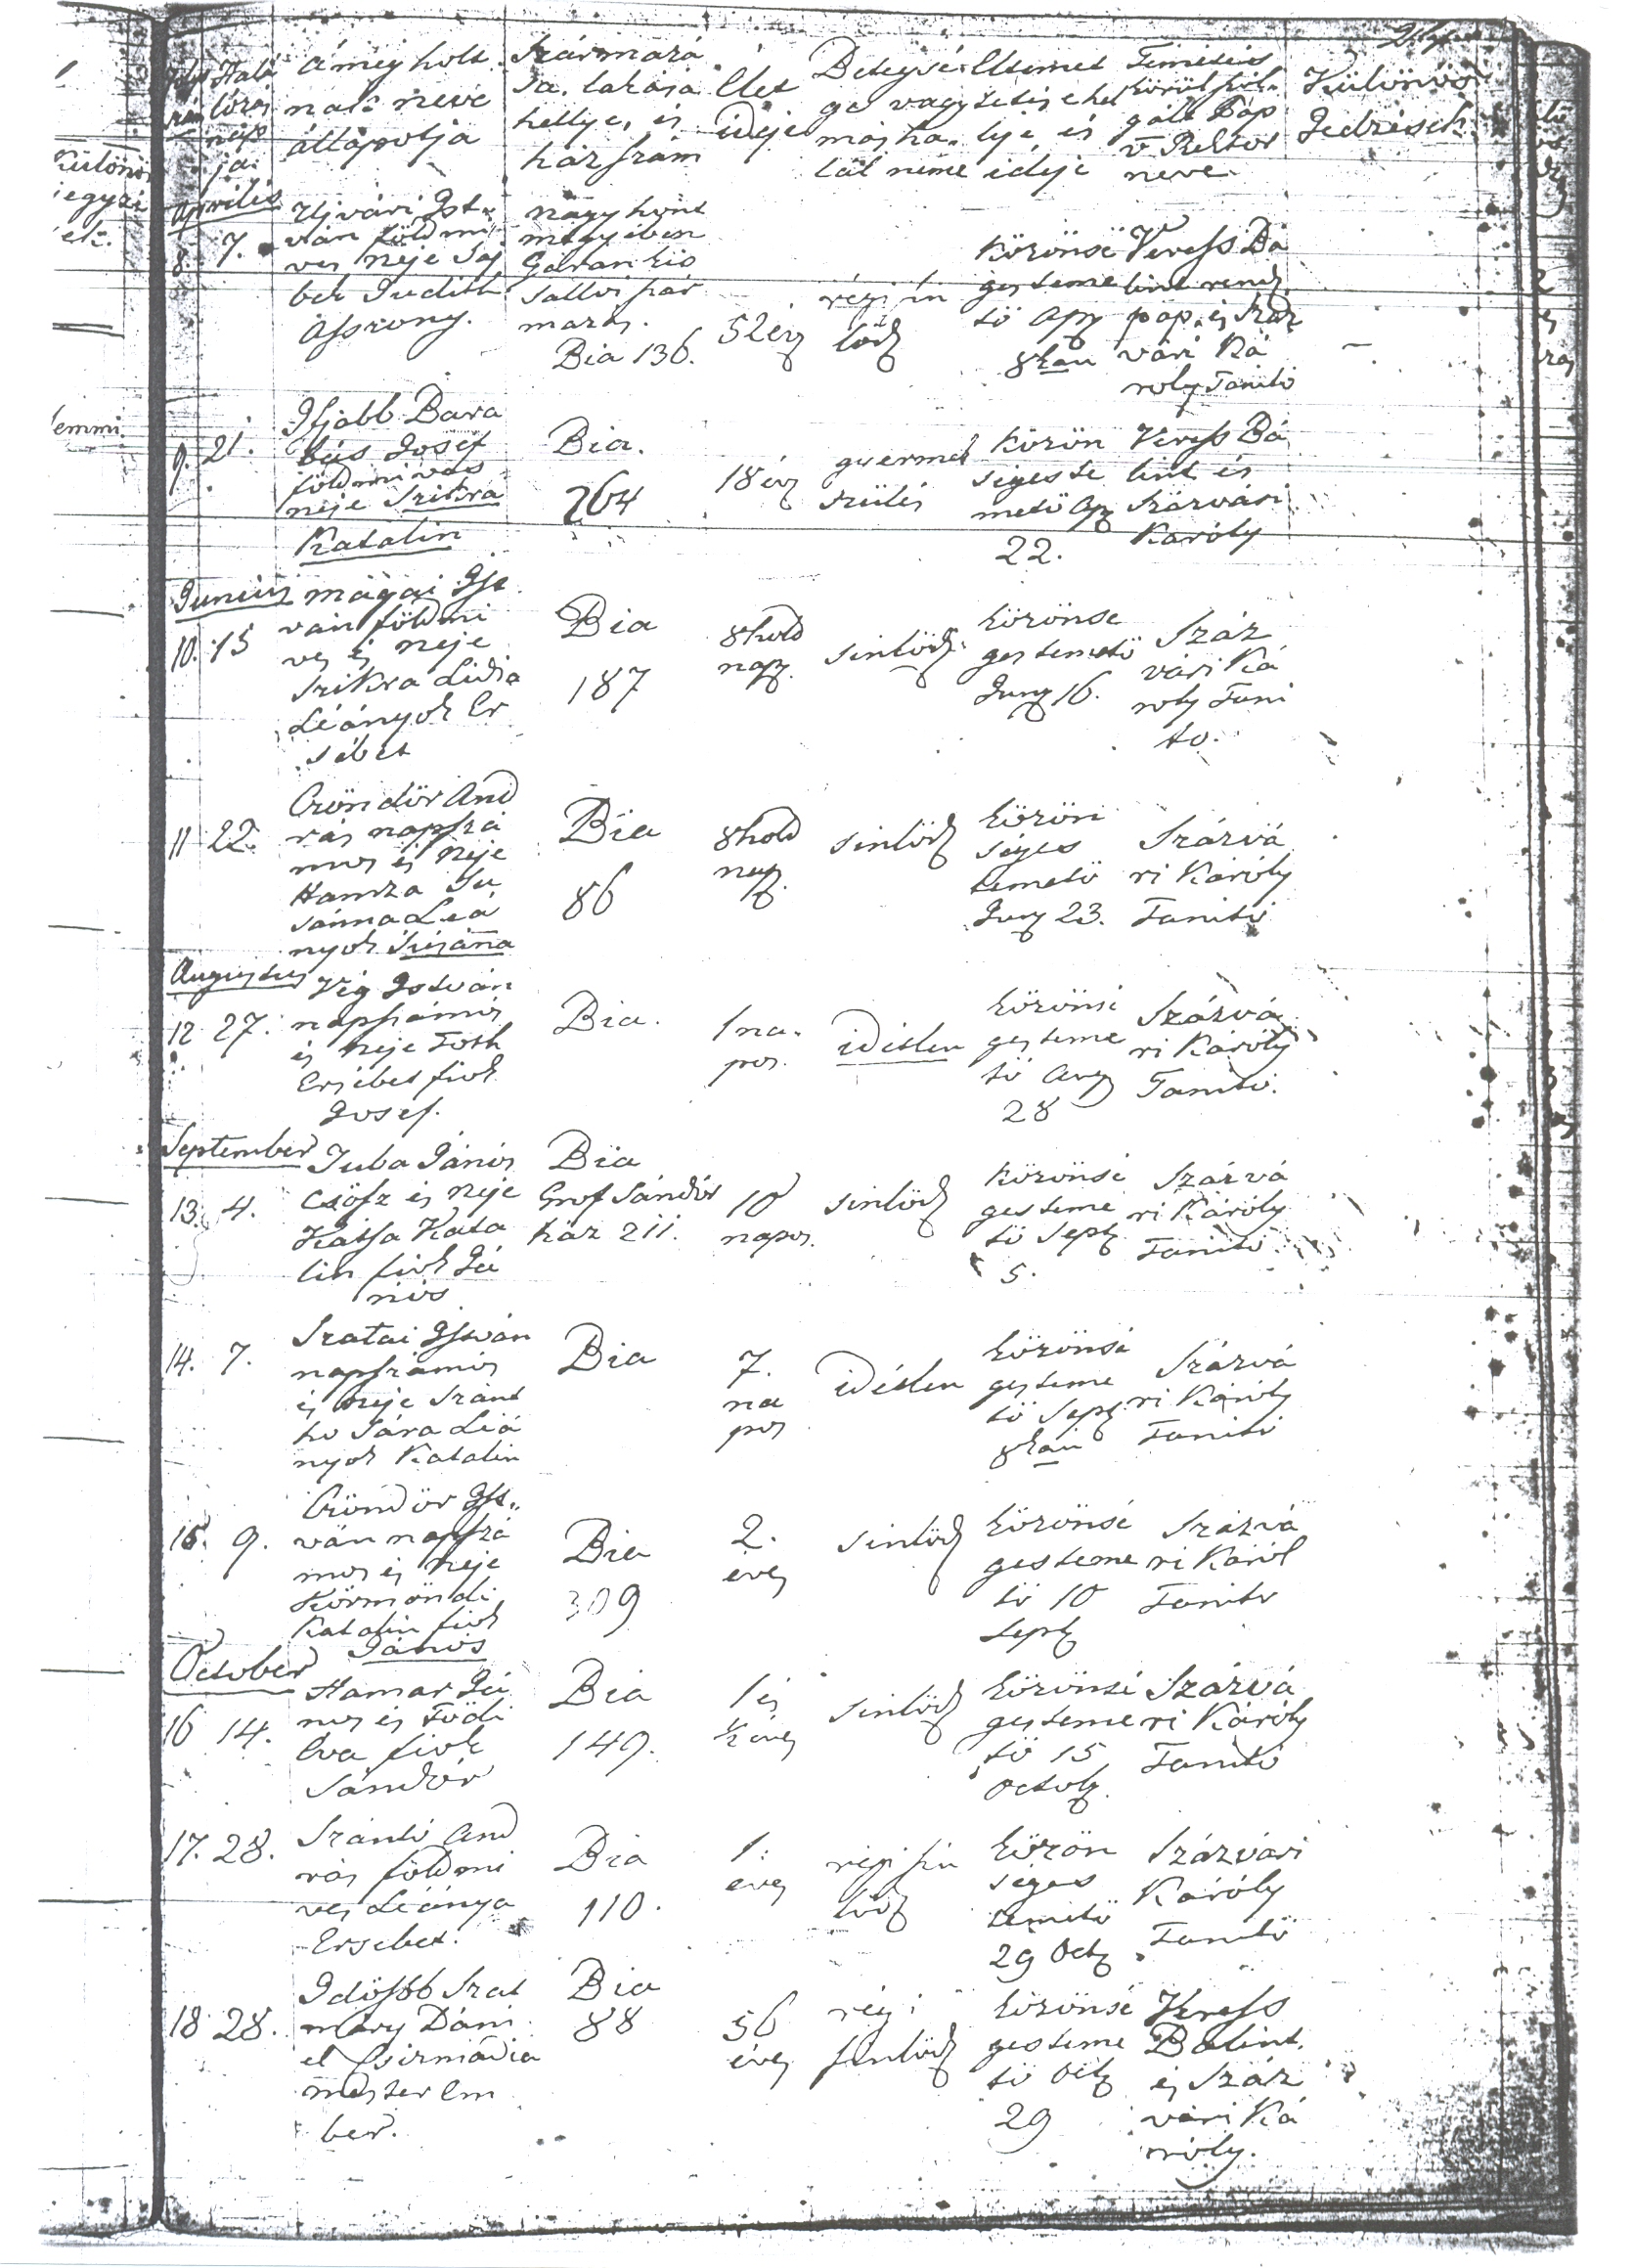 Halá
lozás
nap
ja
A meg holt
nak neve
állapotja
Szármozá
sa. lakása
hellye, és
házszám
Élet
ideje
Betegsé
ge vagy
más ha
lál neme
Eltemet
tetés hel
lye, és
ideje
Temetés
körül szol
gált Pap
v Rektor
neve
Különös
Jedzések
Különös
jegyzé
sek.
Aprilis
8. 7.
Ujvári Ist
ván földmi
ves neje
bek Judith
Aszszony.
Nagy hont
megyében
származás.
Bia 136.
52 év
régi sin
lödz
Közönsé
ges teme
tö Apr
8kan
Veress Bá
lint rend.
pap. és Száz
vári Ká
roly Tanitó
9. 21.
Ifjabb Bara
bás Josef
földmives
neje Szikra
Katalin
Bia.
264
18 év
gyermek
szülés
Közön
séges te
metö Apr
22.
Veress Bá
lint és
Százvári
Károly
Junius
10. 15
Magai Ist
ván földmi
ves és neje
Szikra Lidia
Leányok Er
sébet
Bia
187
8 hold
nap.
sinlödz.
közönse
ges temetö
Juny 16.
Száz
vári Ká
roly Tani
to.
11 22.
Csöndör And
rás napszá
mos és neje
Hamza Su
sánna Leá
nyok Susána
Bia
86
8 hold
nap.
sinlödz
közön
séges
temetö
Juny 23.
Százvá
ri Károly
Tanitó
Augustus
12 27.
Vég István
napszámos
és neje Toth
Ersébet fiok
Josef.
Bia.
1 na
pos.
idétlen
közönsé
ges teme
tö Aug
28
Százvá
ri Károly
Tanitó.
September
13. 4.
Juba János
csösz és neje
Katsa Kata
lin fiok Já
nos
Bia
Grof Sándor
ház 211.
10
napos.
sinlödz
közönsé
ges teme
tö Sept
5.
Százvá
ri Károly
Tanitó
14. 7.
Szatai István
napszámos
és neje Szánt
ho Sára Leá
nyok Katalin
Bia
7.
na
pos
idétlen
közönsé
ges teme
tö Sept
8kan
Százvá
ri Károly
Tanitó
15. 9.
Csöndör Ist
ván napszá
mos és neje
Körmöndi
Katalin fiok
János
Bia
309
2.
éves
sinlödz
közönsé
ges teme
tö 10
Sept
Százvá
ri Károl
Tanitó
October
16 14.
Hamar Já
nos és Födi
Eva fiok
Sándor
Bia
149.
1 és
½ éves
sinlödz
közönsé
ges teme
tö 15
Octob.
Százvá
ri Károly
Tanitó
17. 28.
Szántó And
rás földmi
ves Leánya
Ersebet.
Bia
110.
1.
eves
régi sin
lödz
közön
séges
temetö
29 Oct
Százvári
Károly
Tanitó
18 28.
Idösbb Szat
máry Dáni
el Csizmadia
mester em
ber.
Bia
88
56
éves
régi
sinlödz
közönsé
ges teme
tö Oct
29
Veress
Bálint
és Száz
vári Ká
roly.